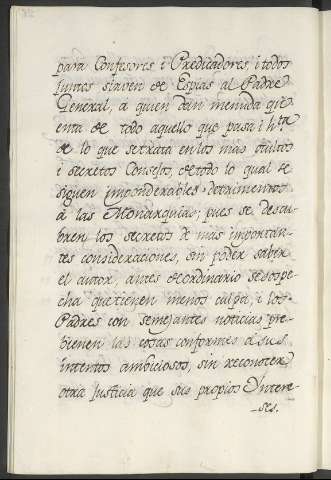 para Confesores i Predicadores, i todos
juntos sirven de Espias al Padre
General, a quien dan menuda qu-
enta de todo aquello que pasa i hta
de lo que se trata en los mas ocultos
i secretos Consejos, de todo lo qual se
siguen imponderables detrimentos
à las Monarquias; pues se descu-
bren los secretos de mas importan-
tes consideraciones, sin poder saber
el autor, antes de ordinario se sospe-
cha que tienen menos culpa, i los
Padres con semejantes noticias pre-
bienen las cosas conformes a sus
intentos ambiciosos, sin reconocer
otra Justicia que sus propios Yntere-
-ses.